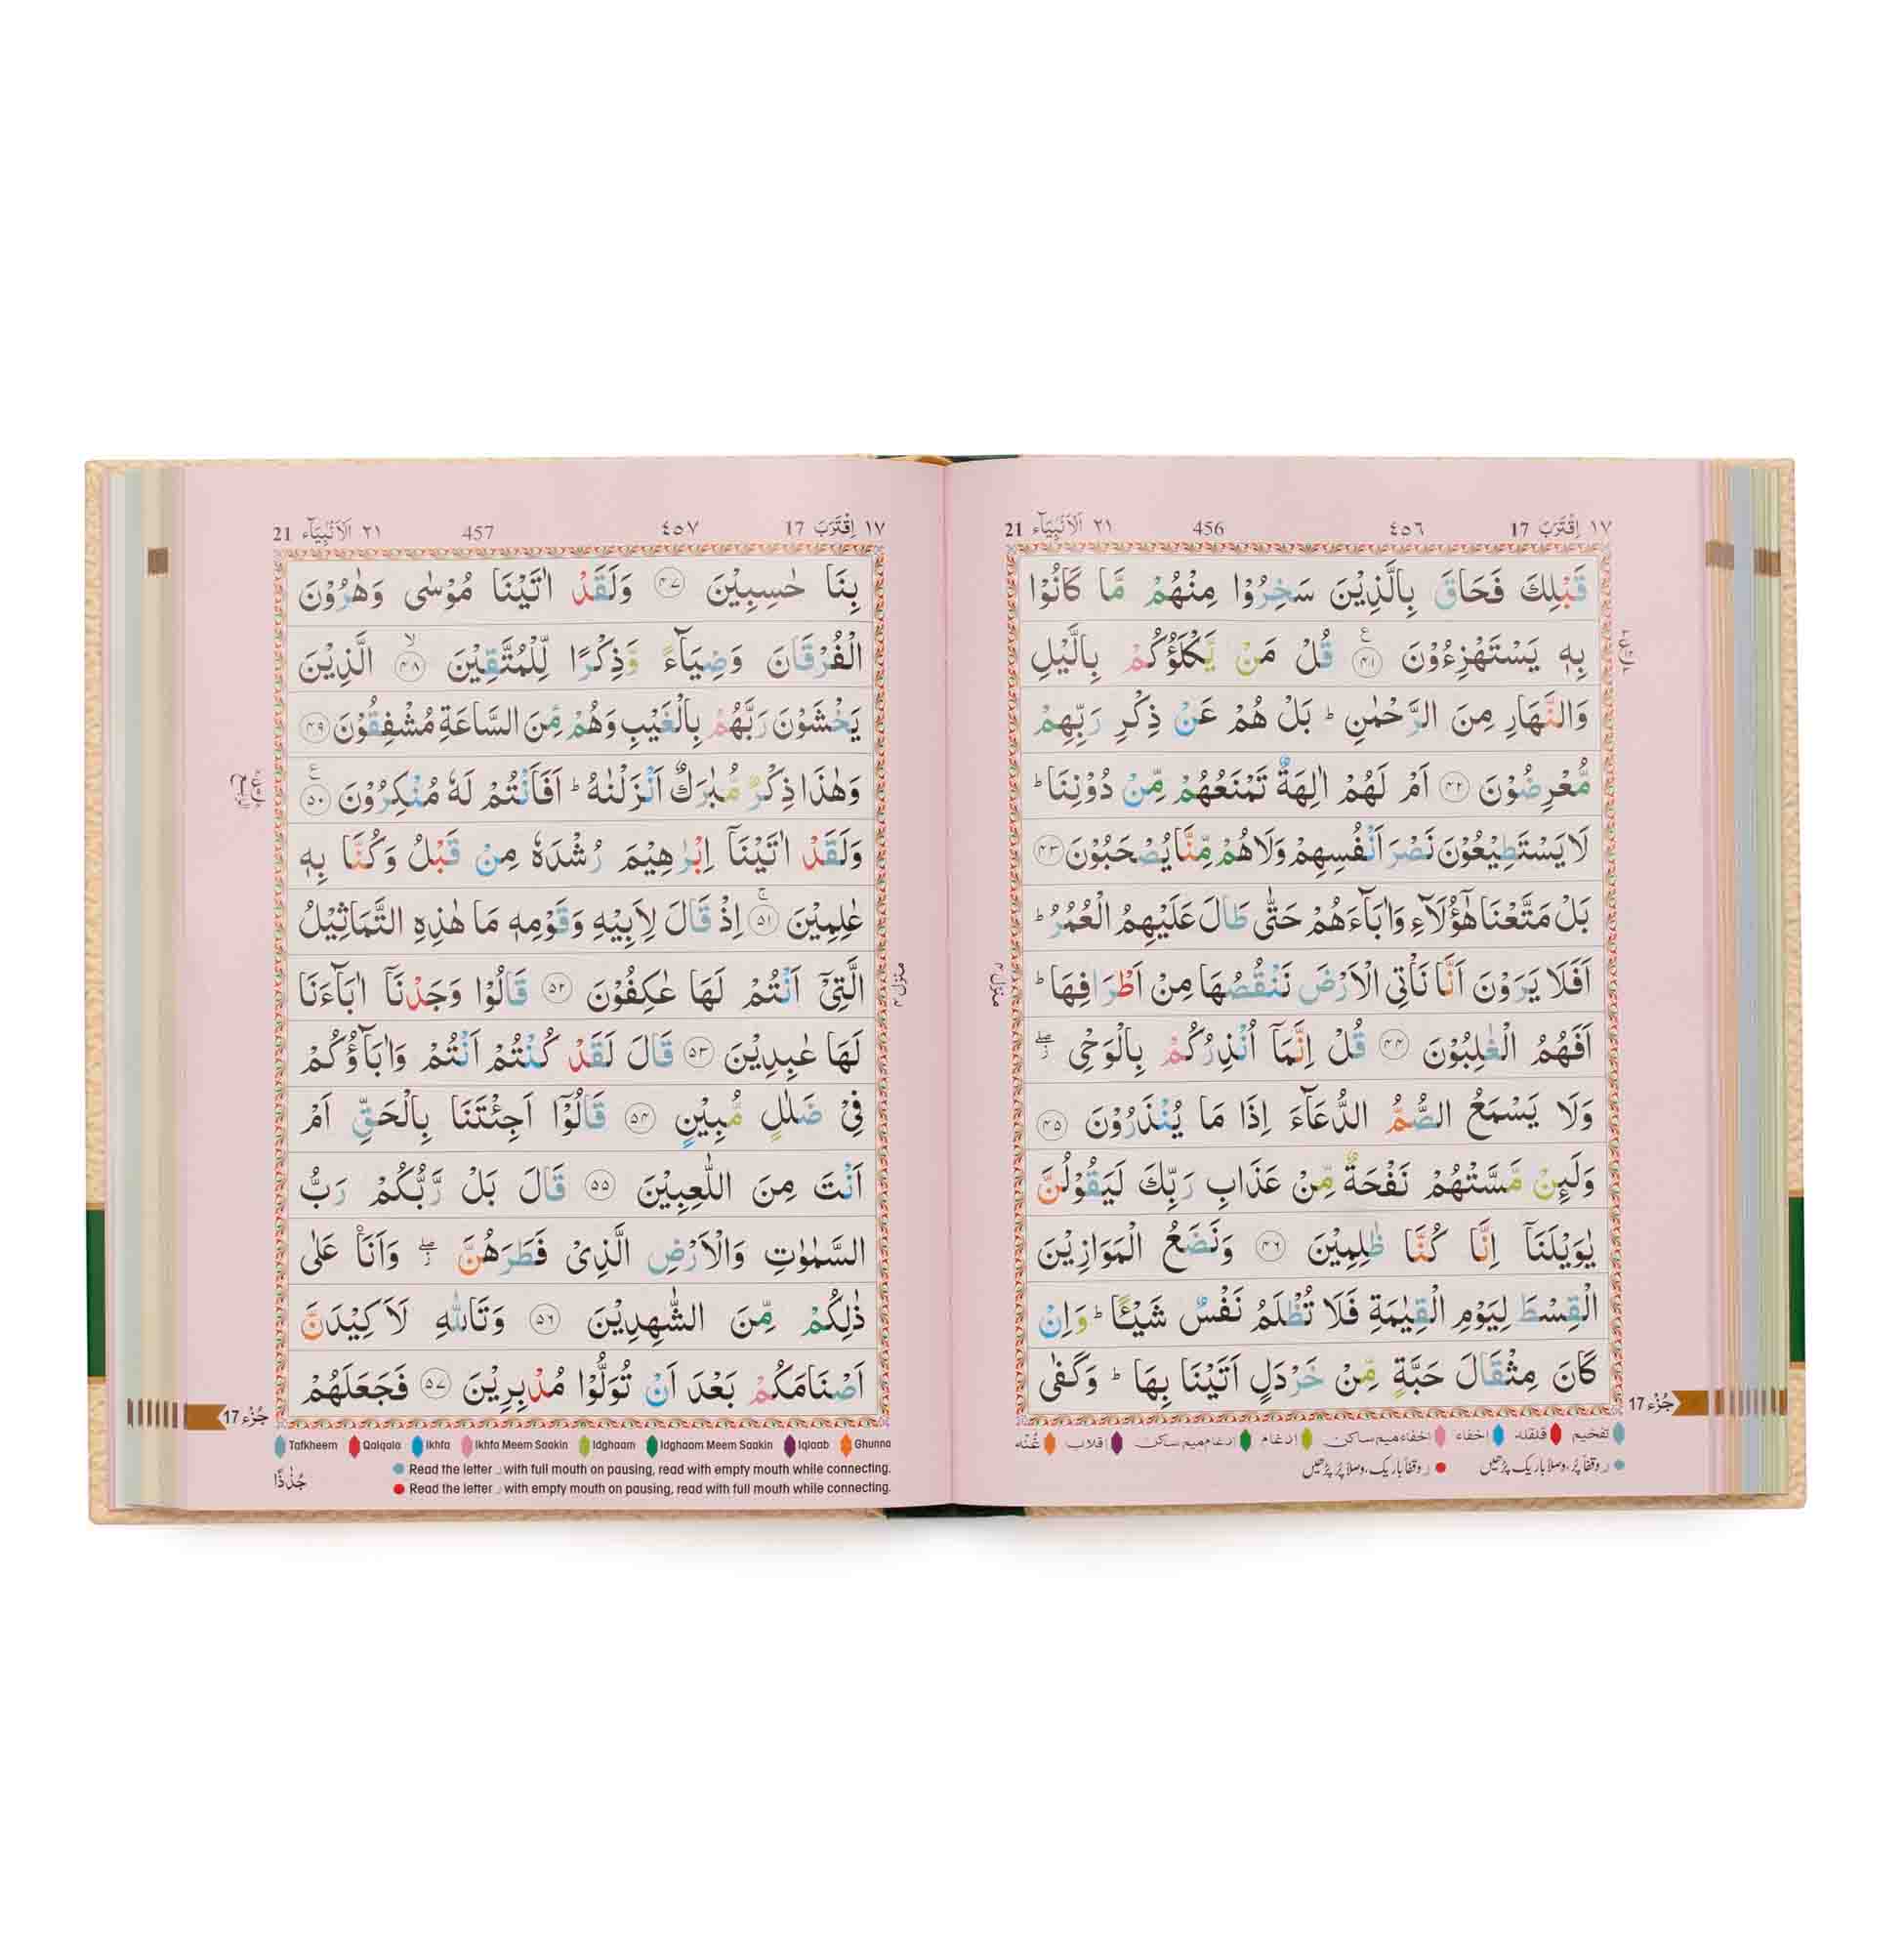 ١٧ اِقْتَرَبَ 17 ٤٥٦ 456 ٢١ اَلْاَنْبِيَآء 21
قَبْلِكَ فَحَاقَ بِالَّذِيْنَ سَخِرُوْا مِنْهُمْ مَّا كَانُوْا
بِهٖ يَسْتَهْزِءُوْنَ ﴿٤١﴾ قُلْ مَنْ يَّكْلَؤُكُمْ بِالَّيْلِ
وَالنَّهَارِ مِنَ الرَّحْمٰنِ ؕ بَلْ هُمْ عَنْ ذِكْرِ رَبِّهِمْ
مُّعْرِضُوْنَ ﴿٤٢﴾ اَمْ لَهُمْ اٰلِهَةٌ تَمْنَعُهُمْ مِّنْ دُوْنِنَا ؕ
لَا يَسْتَطِيْعُوْنَ نَصْرَ اَنْفُسِهِمْ وَلَا هُمْ مِّنَّا يُصْحَبُوْنَ ﴿٤٣﴾
بَلْ مَتَّعْنَا هٰٓؤُلَآءِ وَاٰبَآءَهُمْ حَتّٰى طَالَ عَلَيْهِمُ الْعُمُرُ ؕ
اَفَلَا يَرَوْنَ اَنَّا نَاْتِى الْاَرْضَ نَنْقُصُهَا مِنْ اَطْرَافِهَا ؕ
اَفَهُمُ الْغٰلِبُوْنَ ﴿٤٤﴾ قُلْ اِنَّمَآ اُنْذِرُكُمْ بِالْوَحْىِ ۖ ز
وَلَا يَسْمَعُ الصُّمُّ الدُّعَآءَ اِذَا مَا يُنْذَرُوْنَ ﴿٤٥﴾
وَلَئِنْ مَّسَّتْهُمْ نَفْحَةٌ مِّنْ عَذَابِ رَبِّكَ لَيَقُوْلُنَّ
يٰوَيْلَنَآ اِنَّا كُنَّا ظٰلِمِيْنَ ﴿٤٦﴾ وَنَضَعُ الْمَوَازِيْنَ
الْقِسْطَ لِيَوْمِ الْقِيٰمَةِ فَلَا تُظْلَمُ نَفْسٌ شَيْـًٔا ؕ وَاِنْ
كَانَ مِثْقَالَ حَبَّةٍ مِّنْ خَرْدَلٍ اَتَيْنَا بِهَا ؕ وَكَفٰى
جُزْء 17
تفخیم قلقله اخفاء اخفاء میم ساکن ادغام ادغام میم ساکن اقلاب غُنّه
ر وقفاً پُر، وصلاً باریک پڑھیں ر وقفاً باریک، وصلاً پُر پڑھیں
منزل ٤
١٧ اِقْتَرَبَ 17 ٤٥٧ 457 ٢١ اَلْاَنْبِيَآء 21
بِنَا حٰسِبِيْنَ ﴿٤٧﴾ وَلَقَدْ اٰتَيْنَا مُوْسٰى وَهٰرُوْنَ
الْفُرْقَانَ وَضِيَآءً وَّذِكْرًا لِّلْمُتَّقِيْنَ ۙ﴿٤٨﴾ الَّذِيْنَ
يَخْشَوْنَ رَبَّهُمْ بِالْغَيْبِ وَهُمْ مِّنَ السَّاعَةِ مُشْفِقُوْنَ ﴿٤٩﴾
وَهٰذَا ذِكْرٌ مُّبٰرَكٌ اَنْزَلْنٰهُ ؕ اَفَاَنْتُمْ لَهٗ مُنْكِرُوْنَ ﴿٥٠﴾
وَلَقَدْ اٰتَيْنَآ اِبْرٰهِيْمَ رُشْدَهٗ مِنْ قَبْلُ وَكُنَّا بِهٖ
عٰلِمِيْنَ ﴿٥١﴾ اِذْ قَالَ لِاَبِيْهِ وَقَوْمِهٖ مَا هٰذِهِ التَّمَاثِيْلُ
الَّتِىْٓ اَنْتُمْ لَهَا عٰكِفُوْنَ ﴿٥٢﴾ قَالُوْا وَجَدْنَآ اٰبَآءَنَا
لَهَا عٰبِدِيْنَ ﴿٥٣﴾ قَالَ لَقَدْ كُنْتُمْ اَنْتُمْ وَاٰبَآؤُكُمْ
فِىْ ضَلٰلٍ مُّبِيْنٍ ﴿٥٤﴾ قَالُوْٓا اَجِئْتَنَا بِالْحَقِّ اَمْ
اَنْتَ مِنَ اللّٰعِبِيْنَ ﴿٥٥﴾ قَالَ بَلْ رَّبُّكُمْ رَبُّ
السَّمٰوٰتِ وَالْاَرْضِ الَّذِىْ فَطَرَهُنَّ ۖ ز وَاَنَا۠ عَلٰى
ذٰلِكُمْ مِّنَ الشّٰهِدِيْنَ ﴿٥٦﴾ وَتَاللّٰهِ لَاَكِيْدَنَّ
اَصْنَامَكُمْ بَعْدَ اَنْ تُوَلُّوْا مُدْبِرِيْنَ ﴿٥٧﴾ فَجَعَلَهُمْ
جُزْء 17
Tafkheem Qalqala Ikhfa Ikhfa Meem Saakin Idghaam Idghaam Meem Saakin Iqlaab Ghunna
Read the letter ر with full mouth on pausing, read with empty mouth while connecting.
Read the letter ر with empty mouth on pausing, read with full mouth while connecting.
جُذٰذًا
منزل ٤